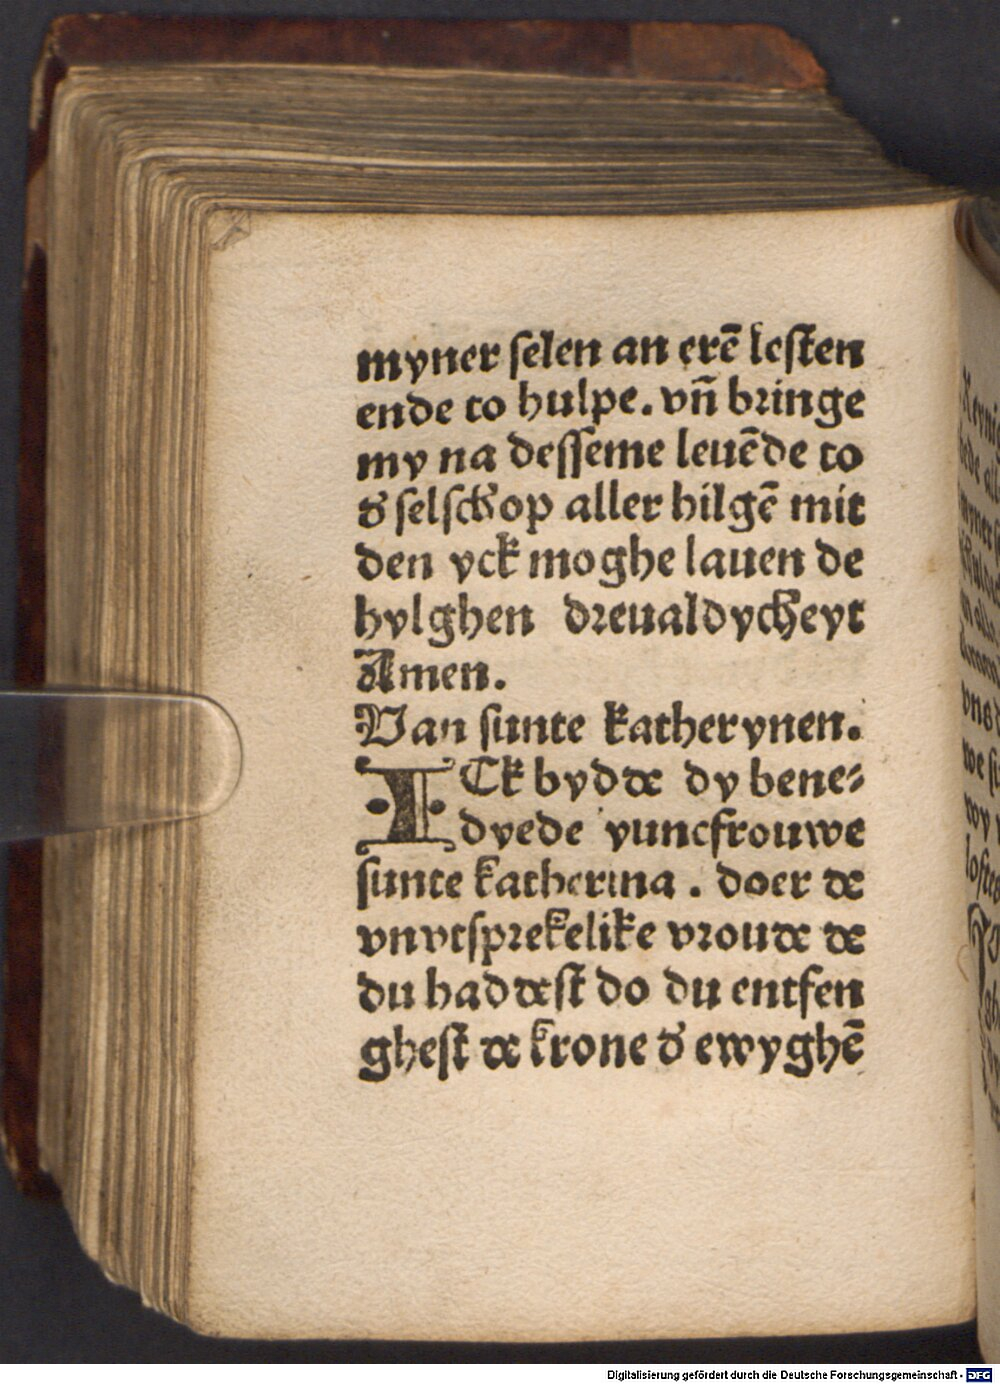 myner ſelen an erē leſten
ende to hulpe. vn̄ bringe
my na deſſeme leuēde to
d' ſelſchop aller hilgē mit
den yck moghe lauen de
hylghen dreualdycheyt
Amen.
Van ſunte katherynen.
ICk bydde dy bene⸗
dyede yuncfrouwe
ſunte katherina. doer de
vnvtſprekelike vroude de
du haddeſt do du entfen
gheſt de krone d' ewyghē
Digitalisierung gefördert durch die Deutsche Forschungsgemeinschaft - DFG